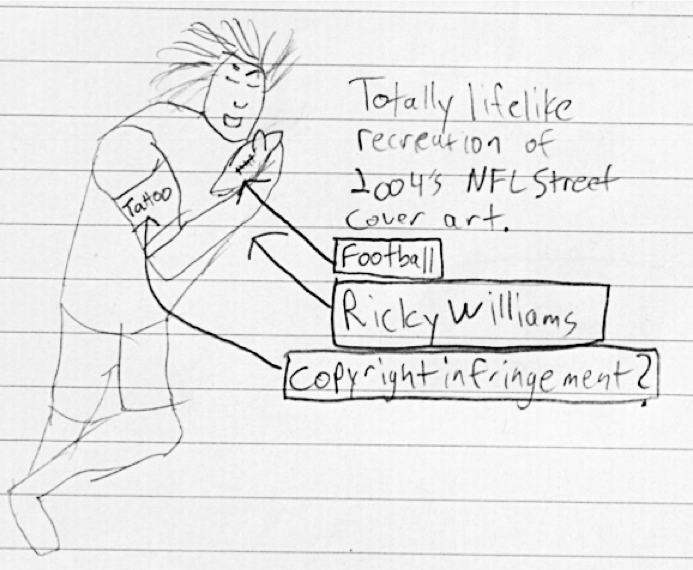 Totally lifelike
recreation of
2004's NFL Street
cover art.
Tattoo
Football
Ricky Williams
Copyright infringement?